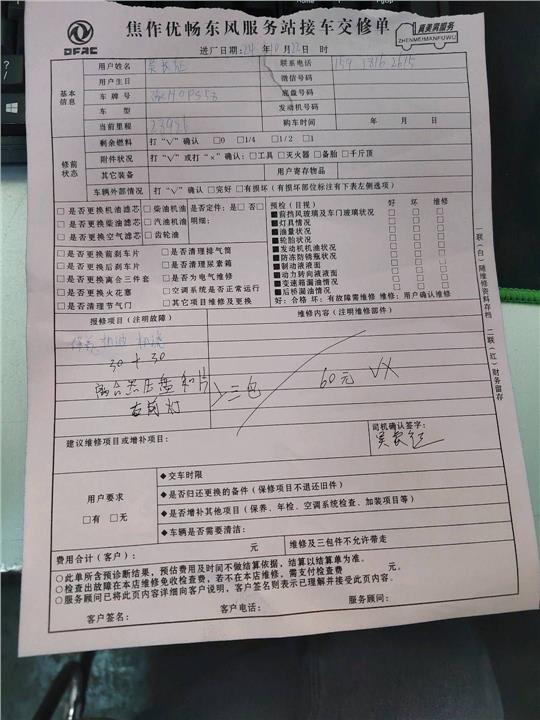 DFAC
焦作优畅东风服务站接车交修单
真美满服务
ZHENMEIMANFUWU
进厂日期: 年 月 日 时
基本信息
用户姓名
联系电话
用户生日
微信号码
车牌号
底盘号码
车型
发动机号码
当前里程
购车时间 年 月 日
修前状态
剩余燃料 打“V”确认 □0 □1/4 □1/2 □1
附件状况 打“V”或打“×”确认:□工具 □灭火器 □备胎 □千斤顶
其它装备
用户寄存物品
车辆外部情况 打“V”确认 □完好 □有损坏(有损坏部位标注有下表左侧选项)
□是否更换机油滤芯 □柴油机油 是否定件:是□ 否□
□是否更换柴油滤芯 □汽油机油 明细:
□是否更换空气滤芯 □齿轮油
□是否更换前刹车片 □是否清理排气筒
□是否更换后刹车片 □是否清理尿素箱
□是否更换离合三件套 □是否为电气维修
□是否更换火花塞 □空调系统是否正常运行
□是否清理节气门 □其它项目维修及更换
预检(目视) 好 坏 维修
■前挡风玻璃及车门玻璃状况
■灯具情况
■油量状况
■轮胎状况
■发动机机油状况
■防冻防锈瓶状况
■制动液液面
■动力转向液液面
■变速箱漏油情况
■后桥漏油情况
好:合格 坏:有故障需维修 维修:用户确认维修
一联(白)随维修资料存档 二联(红)财务留存
报修项目(注明故障)
维修内容(注明维修部件)
30+30
离合器压盘和片
右前灯
三包
60元 VX
建议维修项目或增补项目:
司机确认签字:
用户要求
□有 □无
◆交车时限
◆是否归还更换的备件(保修项目不退还旧件)
◆是否增补其他项目(保养、年检、空调系统检查、加装项目等)
◆车辆是否需要清洁:
费用合计(客户): 元
维修及三包件不允许带走
○此单所含预诊断结果,预估费用及时间不做结算依据,结算以结算单为准。
○检查出故障在本店维修免收检查费,若不在本店维修,需支付检查费 元。
○服务顾问已将此页内容详细向客户说明,客户签名则表示已理解并接受此页内容。
客户签名: 客户电话: 服务顾问: